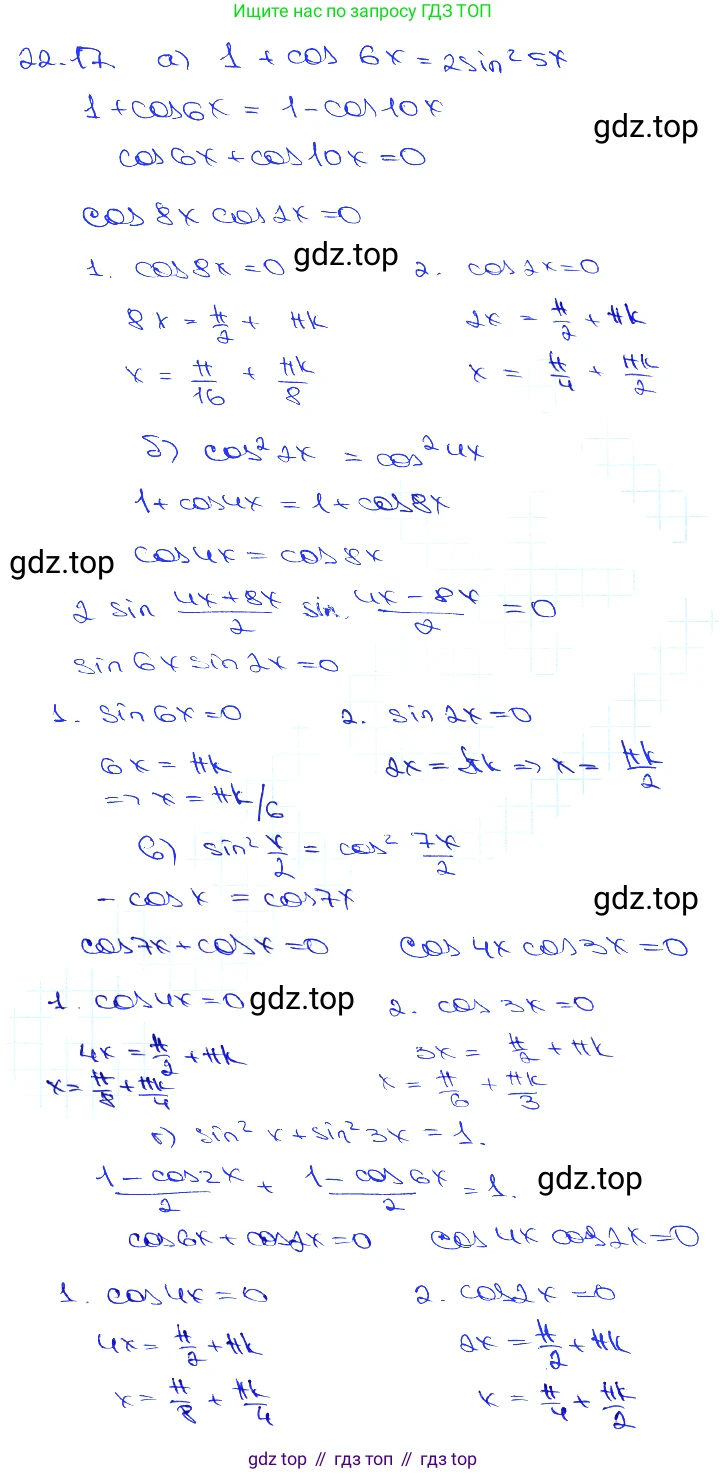 Ищите нас по запросу ГДЗ ТОП
22.17 а) 1 + cos 6x = 2sin² 5x
1 + cos6x = 1 - cos10x
gdz.top
cos6x + cos10x = 0
cos 8x cos 2x = 0
gdz.top
1. cos8x = 0 2. cos2x = 0
8x = π/2 + πk 2x = π/2 + πk
x = π/16 + πk/8 x = π/4 + πk/2
б) cos² 2x = cos² 4x
1 + cos4x = 1 + cos8x
gdz.top
cos4x = cos8x
2 sin (4x + 8x)/2 sin. (4x - 8x)/2 = 0
sin6x sin2x = 0
1. sin6x = 0 2. sin2x = 0
6x = πk 2x = πk => x = πk/2
=> x = πk/6
в) sin² x/2 = cos² 7x/2
- cos x = cos7x
gdz.top
cos7x + cosx = 0 cos 4x cos3x = 0
1. cos4x = 0 gdz.top 2. cos 3x = 0
4x = π/2 + πk 3x = π/2 + πk
x = π/8 + πk/4 x = π/6 + πk/3
г) sin² x + sin² 3x = 1.
(1 - cos2x)/2 + (1 - cos6x)/2 = 1.
gdz.top
cos6x + cos2x = 0 cos 4x cos2x = 0
1. cos4x = 0 2. cos2x = 0
4x = π/2 + πk 2x = π/2 + πk
x = π/8 + πk/4 x = π/4 + πk/2
gdz.top // гдз топ // гдз.top